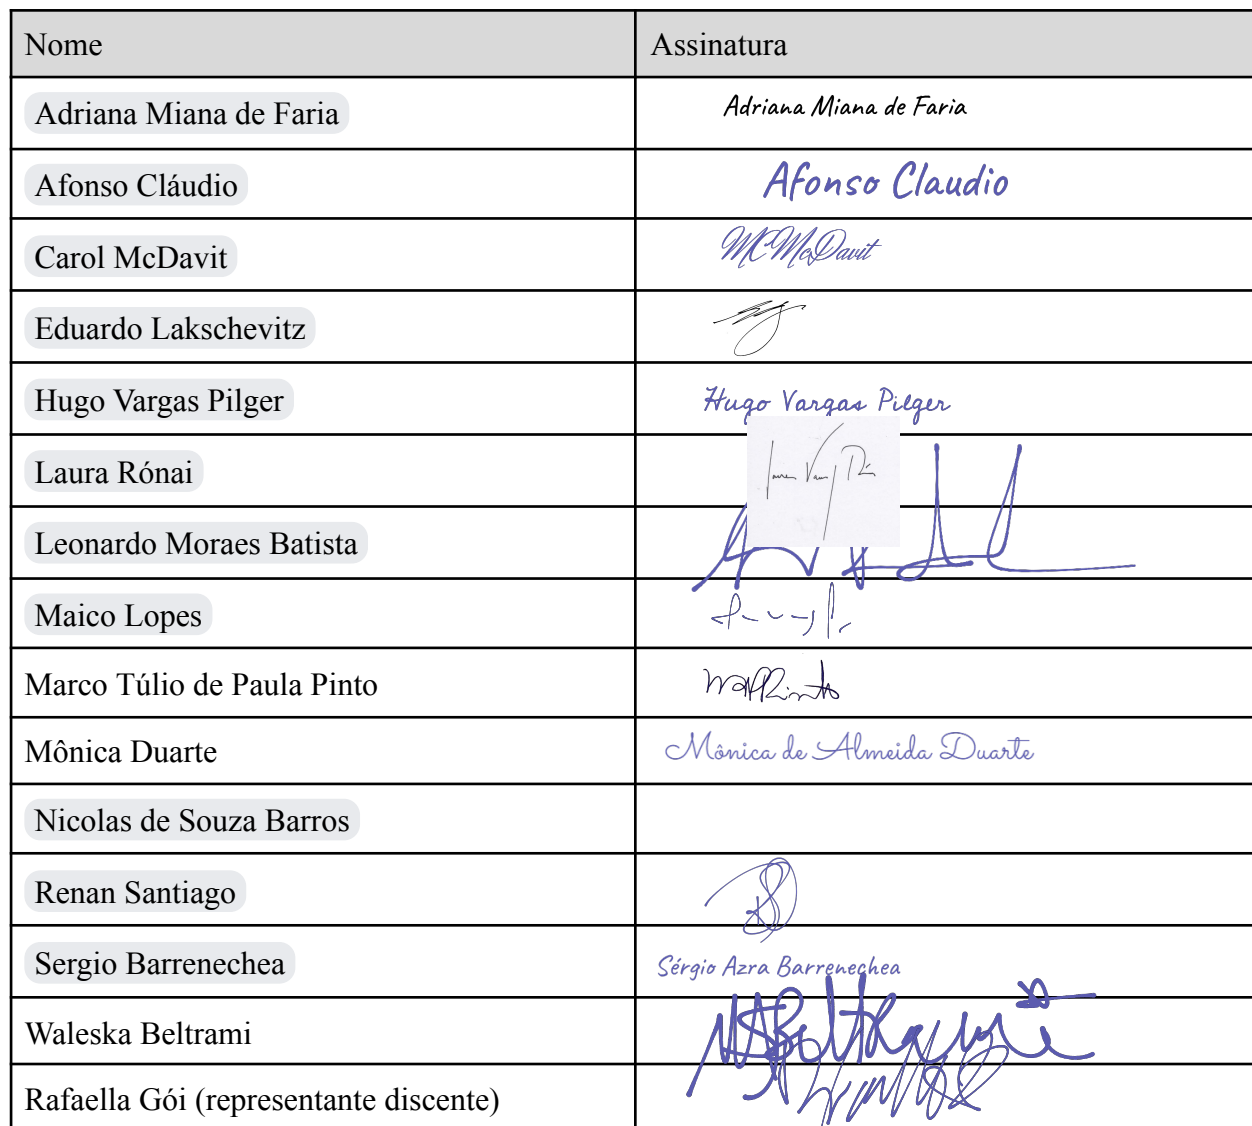 Nome Assinatura
Adriana Miana de Faria Adriana Miana de Faria
Afonso Cláudio Afonso Claudio
Carol McDavit MCMcDavit
Eduardo Lakschevitz
Hugo Vargas Pilger Hugo Vargas Pilger
Laura Rónai
Leonardo Moraes Batista
Maico Lopes
Marco Túlio de Paula Pinto
Mônica Duarte Mônica de Almeida Duarte
Nicolas de Souza Barros
Renan Santiago
Sergio Barrenechea Sérgio Azra Barrenechea
Waleska Beltrami
Rafaella Gói (representante discente)